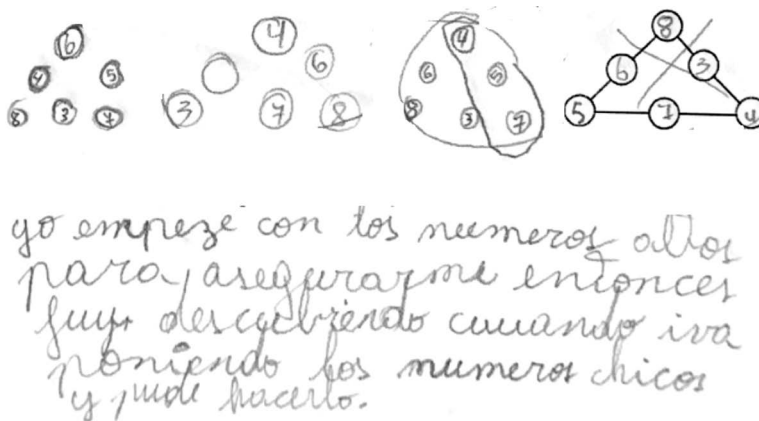 6
4 5
8 3 7
4
6
3 7 8
4
6 5
8 3 7
8
6 3
5 7 4
yo empeze con los numeros altos
para asegurarme entonces
fuy descubriendo cuuando iva
poniendo los numeros chicos
y pude hacerlo.